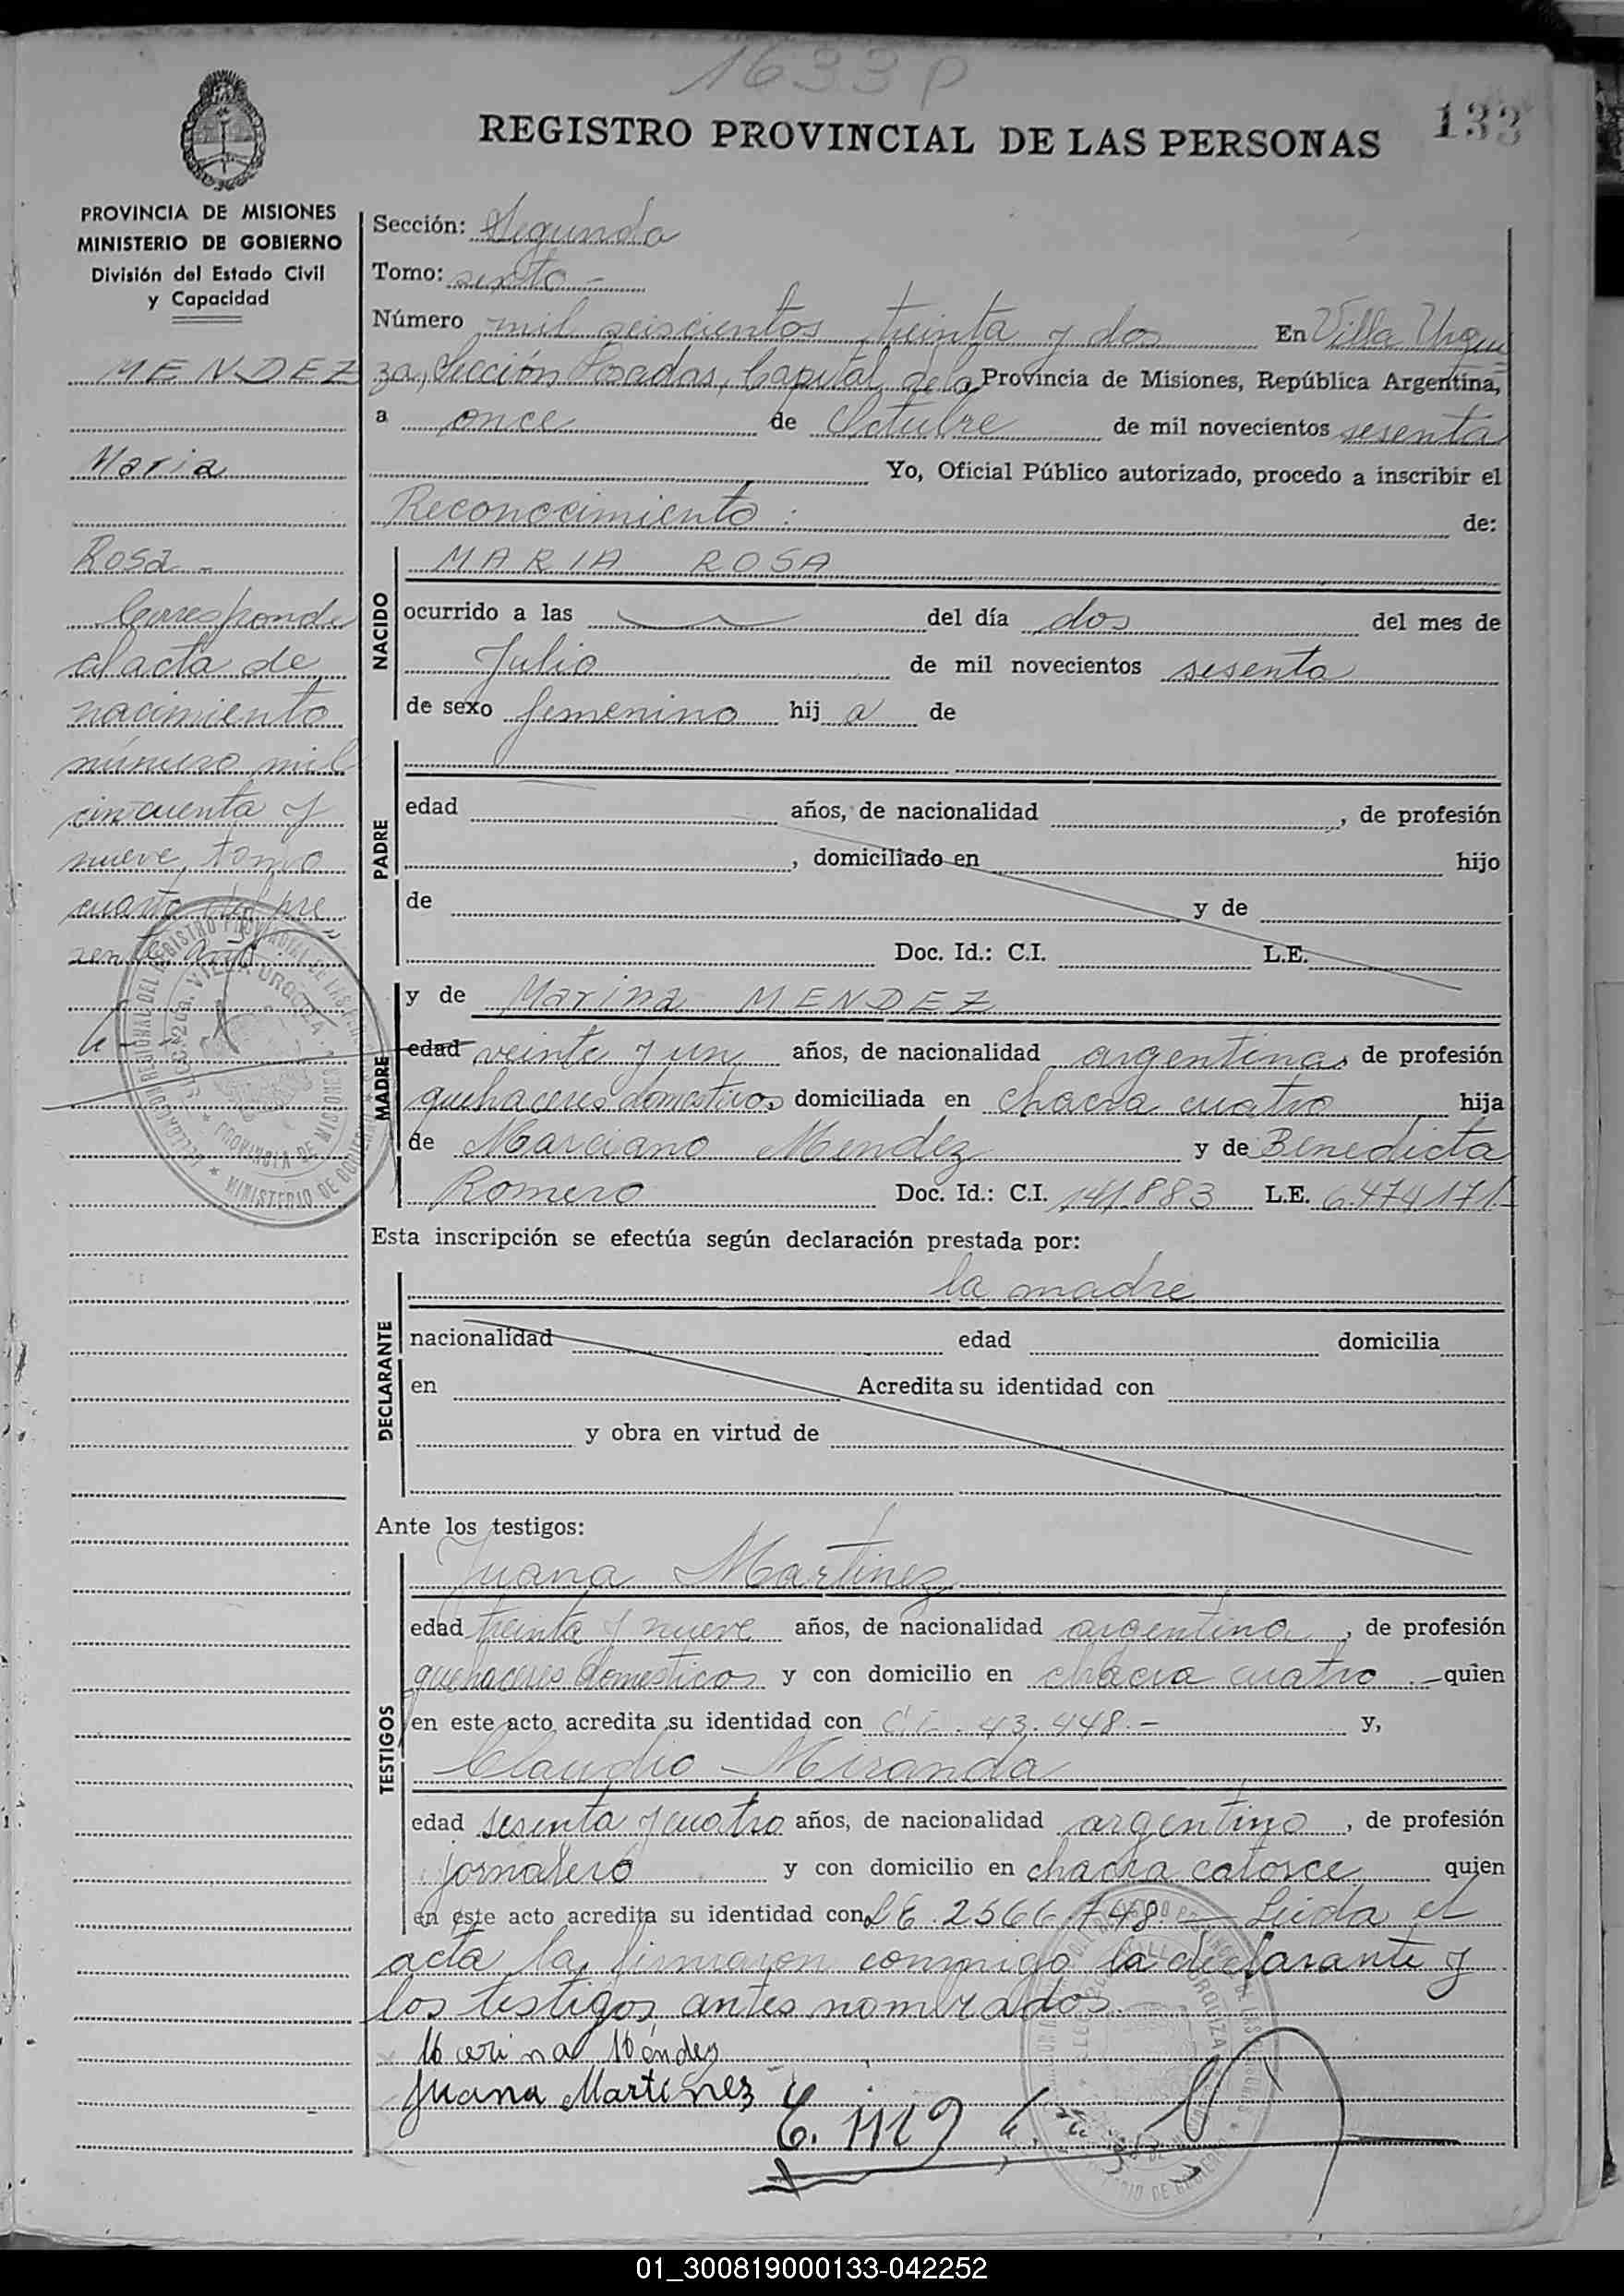 1633 P
REGISTRO PROVINCIAL DE LAS PERSONAS
133
PROVINCIA DE MISIONES
MINISTERIO DE GOBIERNO
División del Estado Civil
y Capacidad
MENDEZ
Maria
Rosa -
Corresponde
al acta de
nacimiento
número mil
cincuenta y
nueve, tomo
cuarto del pre
sente año
Sección: Segunda
Tomo: sexto -
Número mil seiscientos treinta y dos En Villa Urqui
za, Sección Posadas, Capital de la Provincia de Misiones, República Argentina,
a once de Octubre de mil novecientos sesenta
Yo, Oficial Público autorizado, procedo a inscribir el
Reconocimiento : de:
NACIDO
MARIA ROSA
ocurrido a las del día dos del mes de
Julio de mil novecientos sesenta
de sexo femenino hij a de
PADRE
edad años, de nacionalidad , de profesión
, domiciliado en hijo
de y de
Doc. Id.: C.I. L.E.
MADRE
y de Marina MENDEZ
edad veinte y un años, de nacionalidad argentina, de profesión
quehaceres domesticos domiciliada en chacra cuatro hija
de Marciano Mendez y de Benedicta
Romero Doc. Id.: C.I. 141.883 L.E. 6.474.171.-
Esta inscripción se efectúa según declaración prestada por:
DECLARANTE
la madre
nacionalidad edad domicilia
en Acredita su identidad con
y obra en virtud de
Ante los testigos:
TESTIGOS
Juana Martinez
edad treinta y nueve años, de nacionalidad argentina, de profesión
quehaceres domesticos y con domicilio en chacra cuatro .- quien
en este acto acredita su identidad con C.I. 43.448.- y,
Claudio Miranda
edad sesenta y cuatro años, de nacionalidad argentino, de profesión
jornalero y con domicilio en chacra catorce quien
en este acto acredita su identidad con L.E. 2566.748.- Leida el
acta la firmaron conmigo la declarante y
los testigos antes nombrados.
Marina Méndez
Juana Martínez
01_300819000133-042252